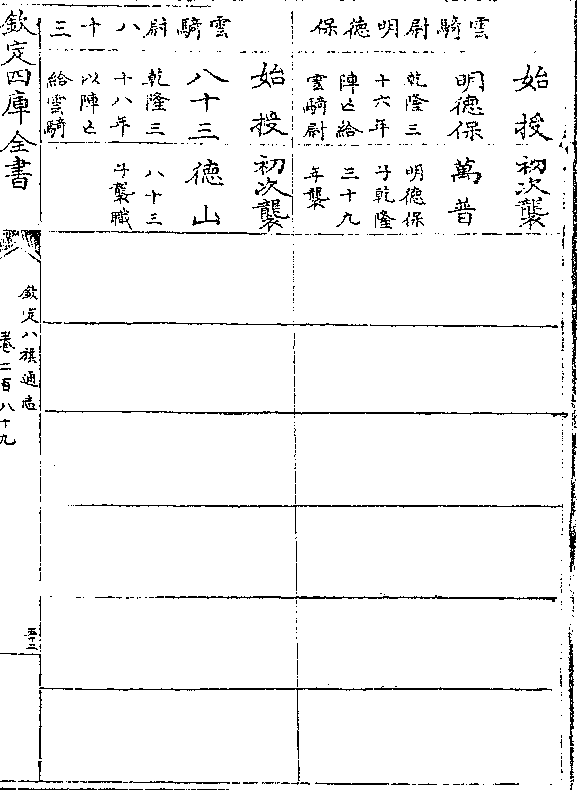 雲騎尉明德保
始授
明德保
乾隆三
十六年
陣亡給
雲騎尉
初次襲
萬普
明德保
子乾隆
三十九
年襲
雲騎尉八十三
始授
八十三
乾隆三
十八年
以陣亡
給雲騎
初次襲
德山
八十三
子襲職
欽定四庫全書
欽定八旗通志
卷二百八十九